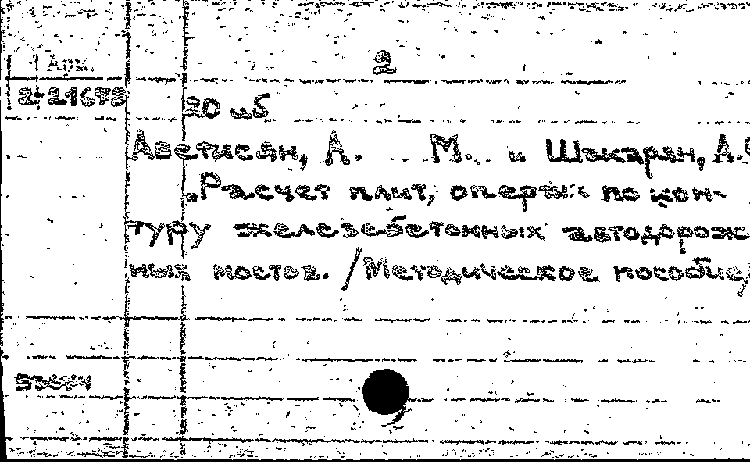 Арм.
2
2-21673
20 иб
Аветисян, А. М. и Шакарян, А.
Расчет плит, оперт. по кон-
туру железебетонных автодорож
ных мостов. /Методическое пособие/